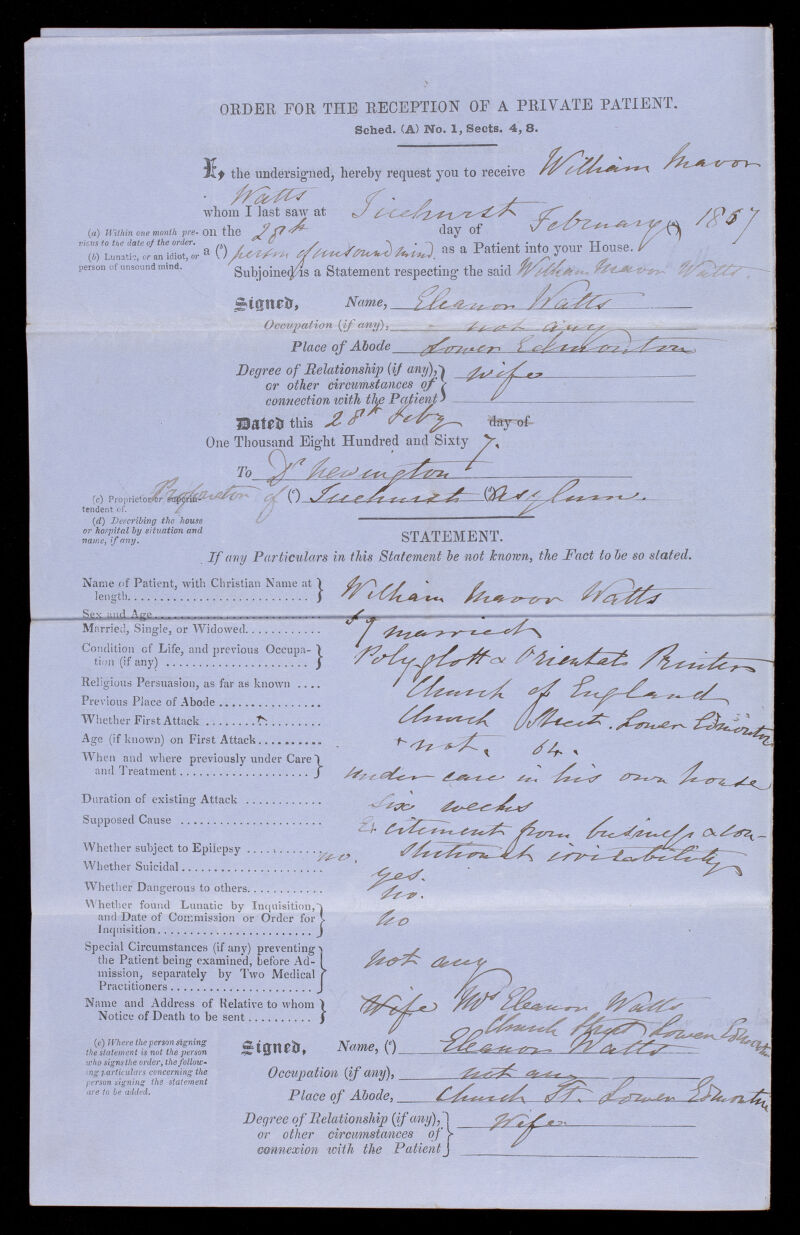 ORDER FOR THE RECEPTION OF A PRIVATE PATIENT.
Sched. (A) No. 1, Sects. 4, 8.
I, the undersigned, hereby request you to receive William Mavor
Watts
whom I last saw at Ticehurst
(a) Within one month previous to the date of the order.
on the 28th day of February (a) 1867
(b) Lunatic, or an idiot, or person of unsound mind.
a (b) person of unsound mind as a Patient into your House.
Subjoined is a Statement respecting the said William Mavor Watts.
Signed, Name, Eleanor Watts
Occupation (if any), not any
Place of Abode Lower Edmonton
Degree of Relationship (if any), or other circumstances of connection with the Patient } Wife
Dated this 28th Feby day of
One Thousand Eight Hundred and Sixty 7.
To Dr Newington
(c) Proprietor or superintendent of.
Proprietor of (c) Ticehurst (d) Asylum.
(d) Describing the house or hospital by situation and name, if any.
STATEMENT.
If any Particulars in this Statement be not known, the Fact to be so stated.
Name of Patient, with Christian Name at length } William Mavor Watts
Sex and Age
Married, Single, or Widowed married
Condition of Life, and previous Occupation (if any) } Polyglott & Oriental Printer
Religious Persuasion, as far as known Church of England
Previous Place of Abode Church Street. Lower Edmonton
Whether First Attack not.
Age (if known) on First Attack 64.
When and where previously under Care and Treatment } under care in his own house
Duration of existing Attack Six weeks
Supposed Cause Excitement from business & con-
stitutional irritability
Whether subject to Epilepsy no.
Whether Suicidal yes.
Whether Dangerous to others no.
Whether found Lunatic by Inquisition, and Date of Commission or Order for Inquisition } no
Special Circumstances (if any) preventing the Patient being examined, before Admission, separately by Two Medical Practitioners } not any
Name and Address of Relative to whom Notice of Death to be sent } Wife Mrs Eleanor Watts
Church Street Lower Edmonton
(e) Where the person signing the statement is not the person who signs the order, the following particulars concerning the person signing the statement are to be added.
Signed, Name, (e) Eleanor Watts
Occupation (if any), not any
Place of Abode, Church St. Lower Edmonton
Degree of Relationship (if any), or other circumstances of connexion with the Patient } Wife